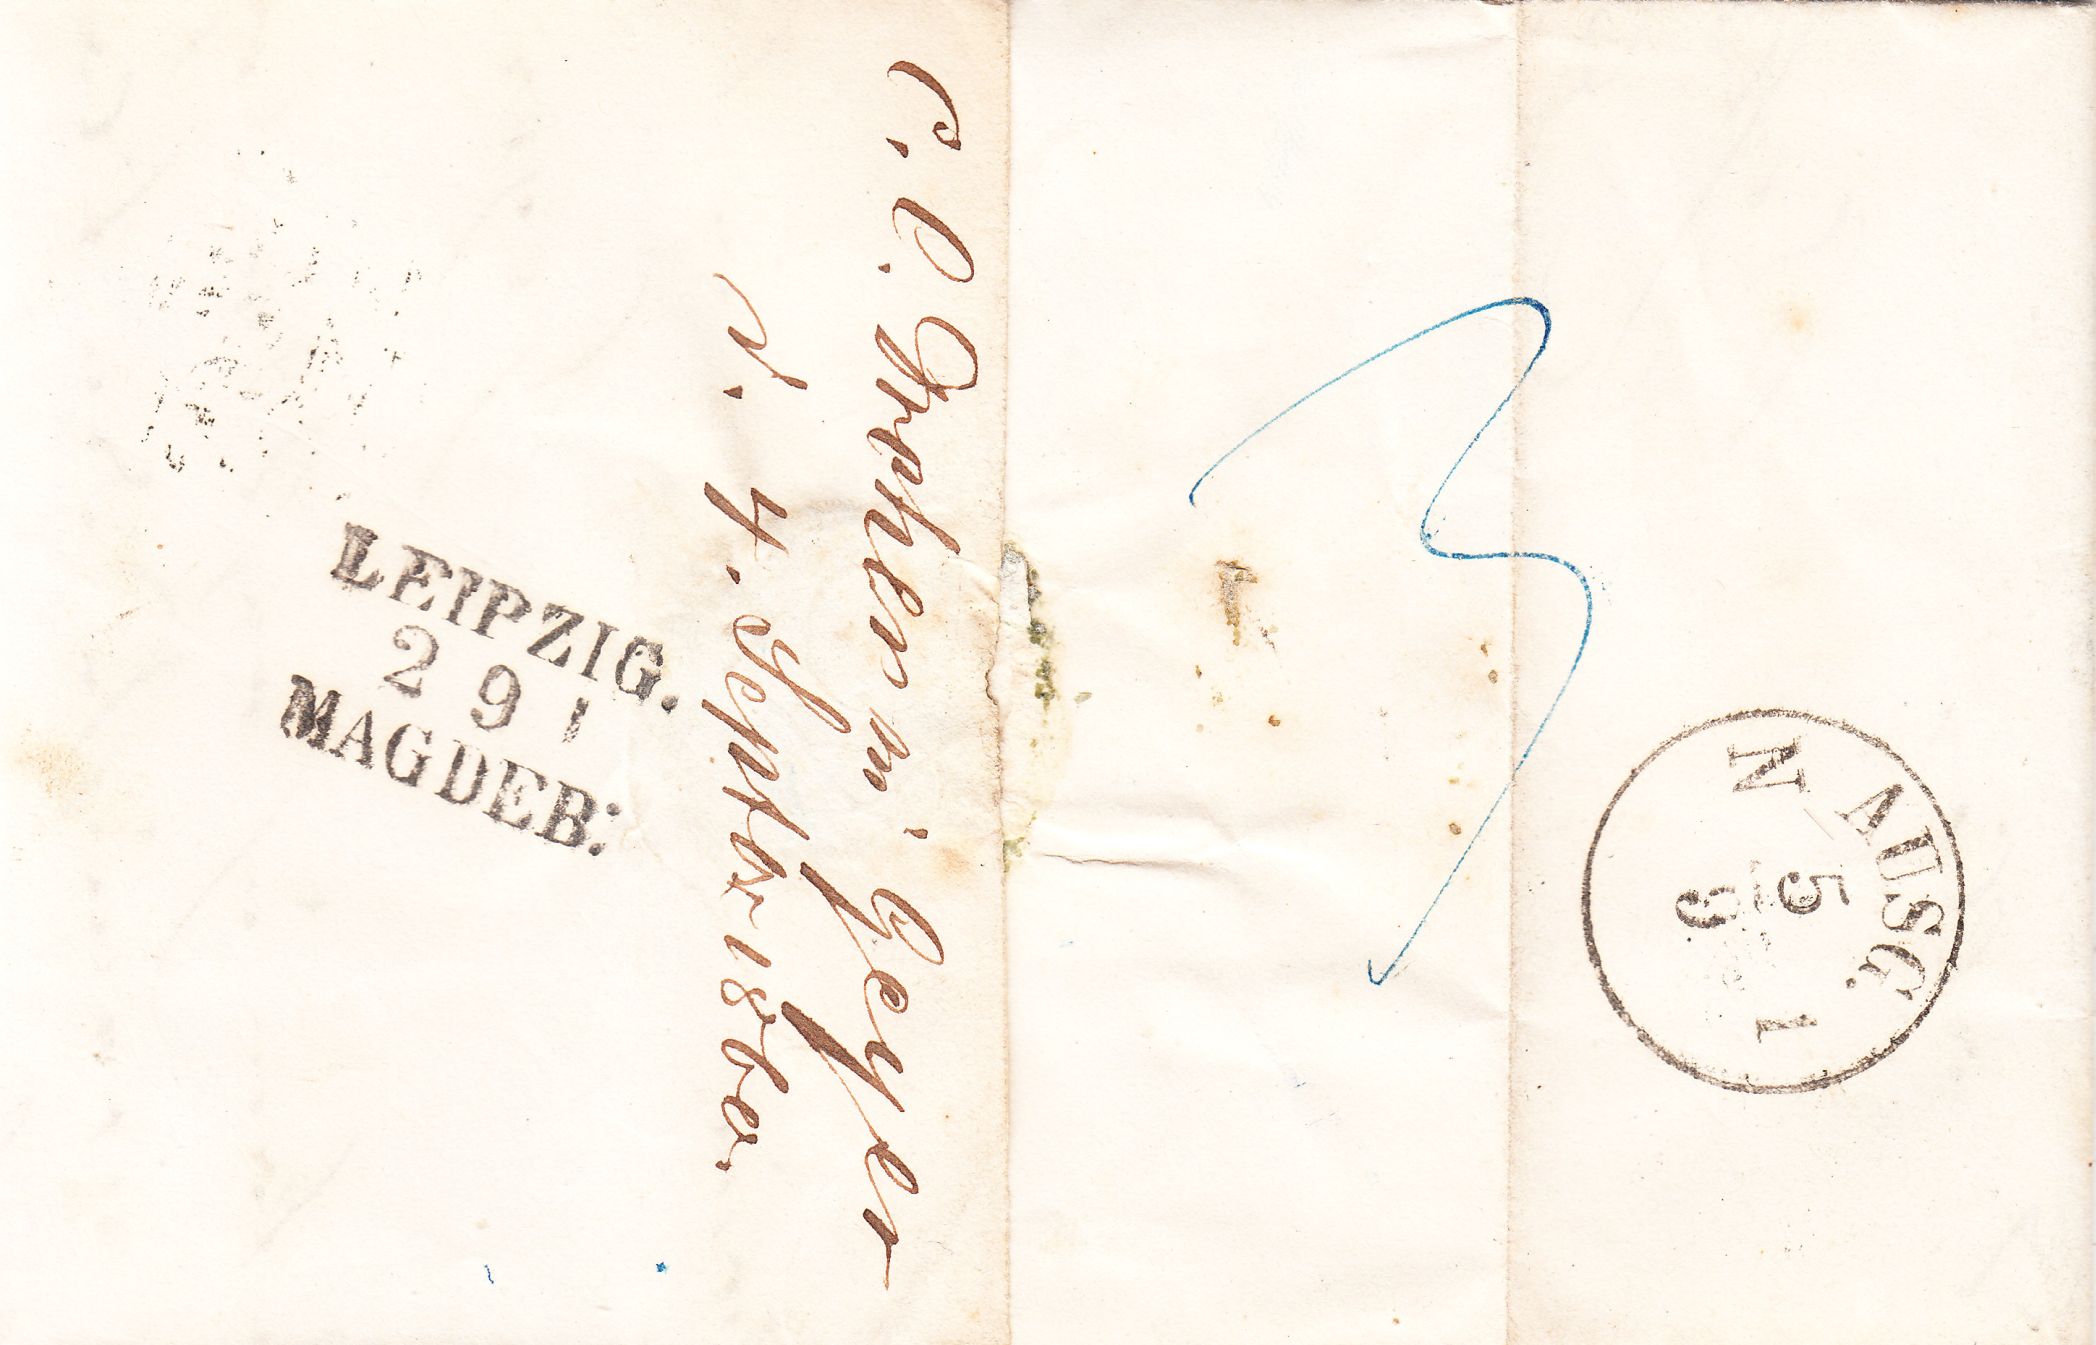 LEIPZIG.
2 9 1
MAGDEB:
Geyer
v. 4. Septbr 1860.
3
AUSG.
N 5 1
9